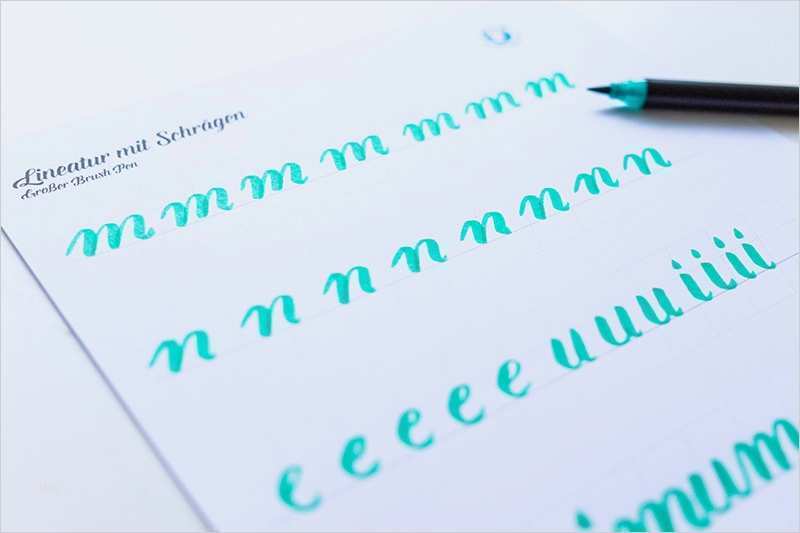 Lineatur mit Schrägen
Großer Brush Pen
m m m m m m m
n n n n n n n n
e e e e e u u u i i i i
imum